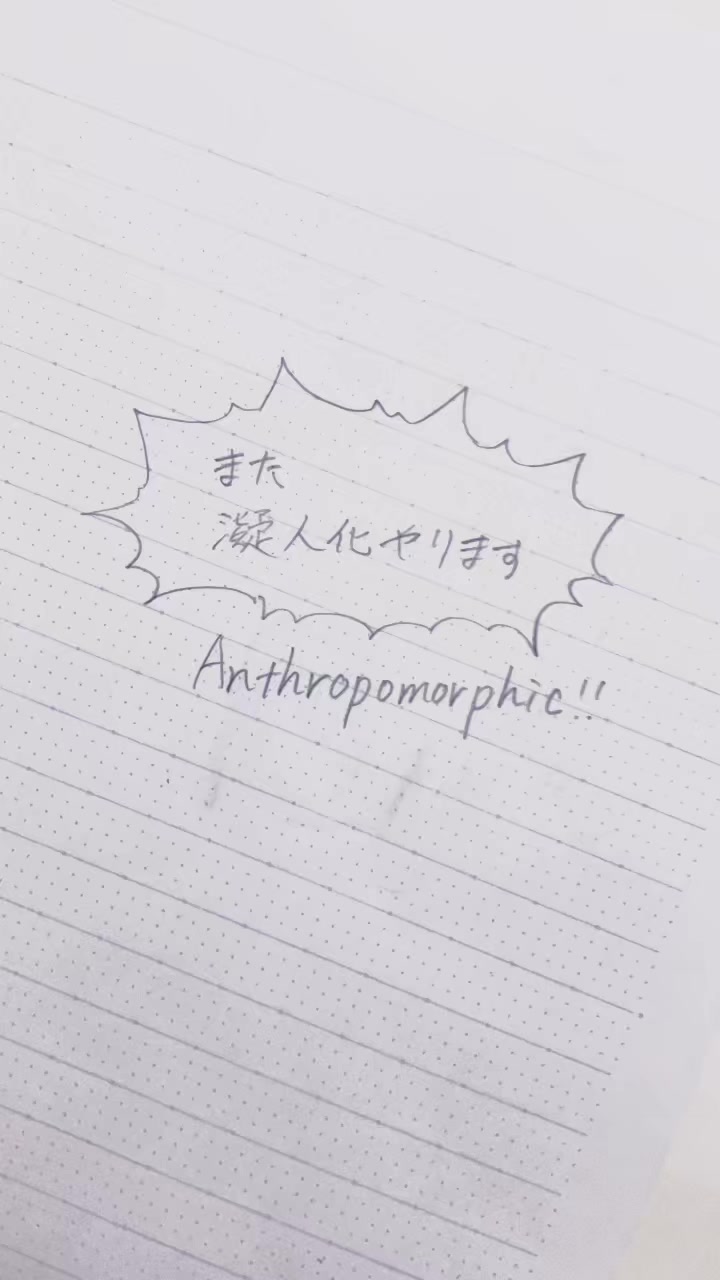 また
凝人化やります
Anthropomorphic!!